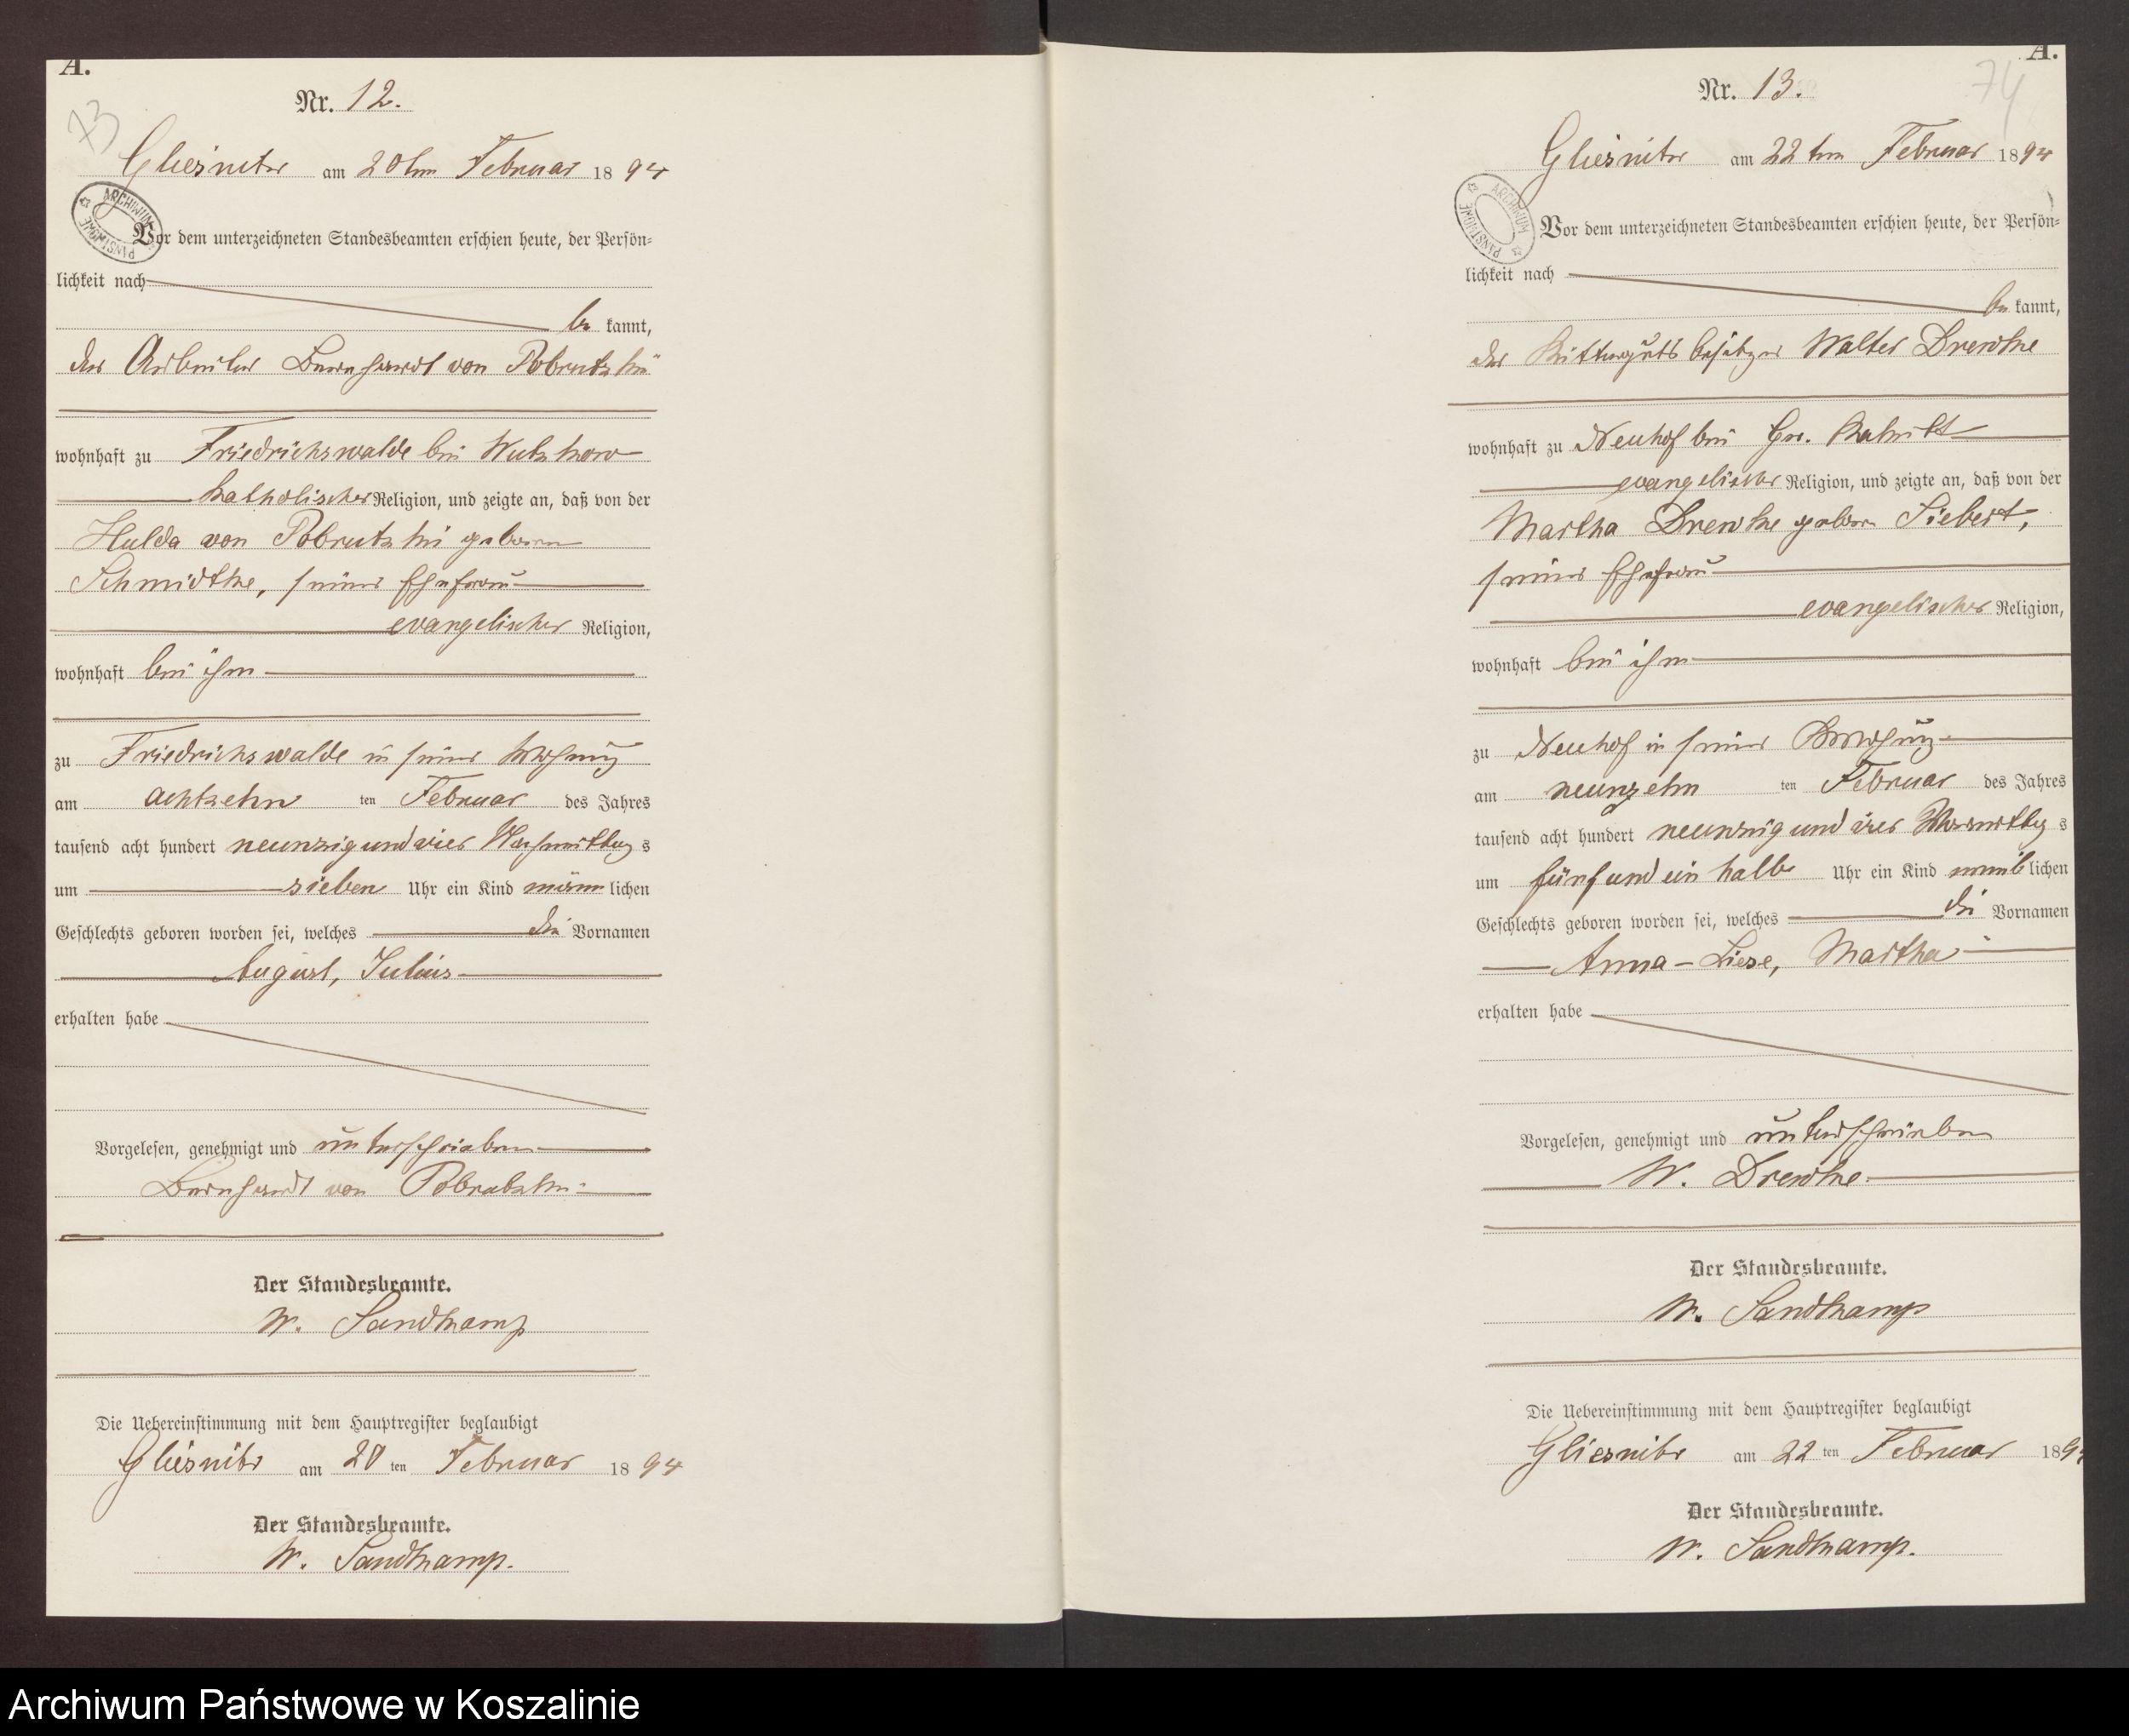 A.
73
Nr. 12.
Gliesnitz am 20ten Februar 1894
ARCHIWUM PAŃSTWOWE
Vor dem unterzeichneten Standesbeamten erschien heute, der Persön-
lichkeit nach
be kannt,
der Arbeiter Bernhardt von Pobrutzki
wohnhaft zu Friedrichswalde bei Wutzkow
katholischer Religion, und zeigte an, daß von der
Hulda von Pobrutzki geboren
Schmidtke, seiner Ehefrau
evangelischer Religion,
wohnhaft bei ihm
zu Friedrichswalde in seiner Wohnung
am achtzehn ten Februar des Jahres
tausend acht hundert neunzig und vier Nachmittags
um sieben Uhr ein Kind männlichen
Geschlechts geboren worden sei, welches die Vornamen
August, Julius
erhalten habe
Vorgelesen, genehmigt und unterschrieben
Bernhardt von Pobrutzki
Der Standesbeamte.
W. Sandkamp
Die Uebereinstimmung mit dem Hauptregister beglaubigt
Gliesnitz am 20 ten Februar 1894
Der Standesbeamte.
W. Sandkamp.
A.
74
Nr. 13.
Gliesnitz am 22ten Februar 1894
ARCHIWUM PAŃSTWOWE
Vor dem unterzeichneten Standesbeamten erschien heute, der Persön-
lichkeit nach
be kannt,
der Rittergutsbesitzer Walter Drewke
wohnhaft zu Neuhof bei Gr.
evangelischer Religion, und zeigte an, daß von der
Martha Drewke geboren Siebert,
seiner Ehefrau
evangelischer Religion,
wohnhaft bei ihm
zu Neuhof in seiner Wohnung
am neunzehn ten Februar des Jahres
tausend acht hundert neunzig und vier Vormittags
um fünf und ein halb Uhr ein Kind weiblichen
Geschlechts geboren worden sei, welches die Vornamen
Anna-Liese, Martha
erhalten habe
Vorgelesen, genehmigt und unterschrieben
W. Drewke.
Der Standesbeamte.
W. Sandkamp
Die Uebereinstimmung mit dem Hauptregister beglaubigt
Gliesnitz am 22 ten Februar 1894
Der Standesbeamte.
W. Sandkamp.
Archiwum Państwowe w Koszalinie